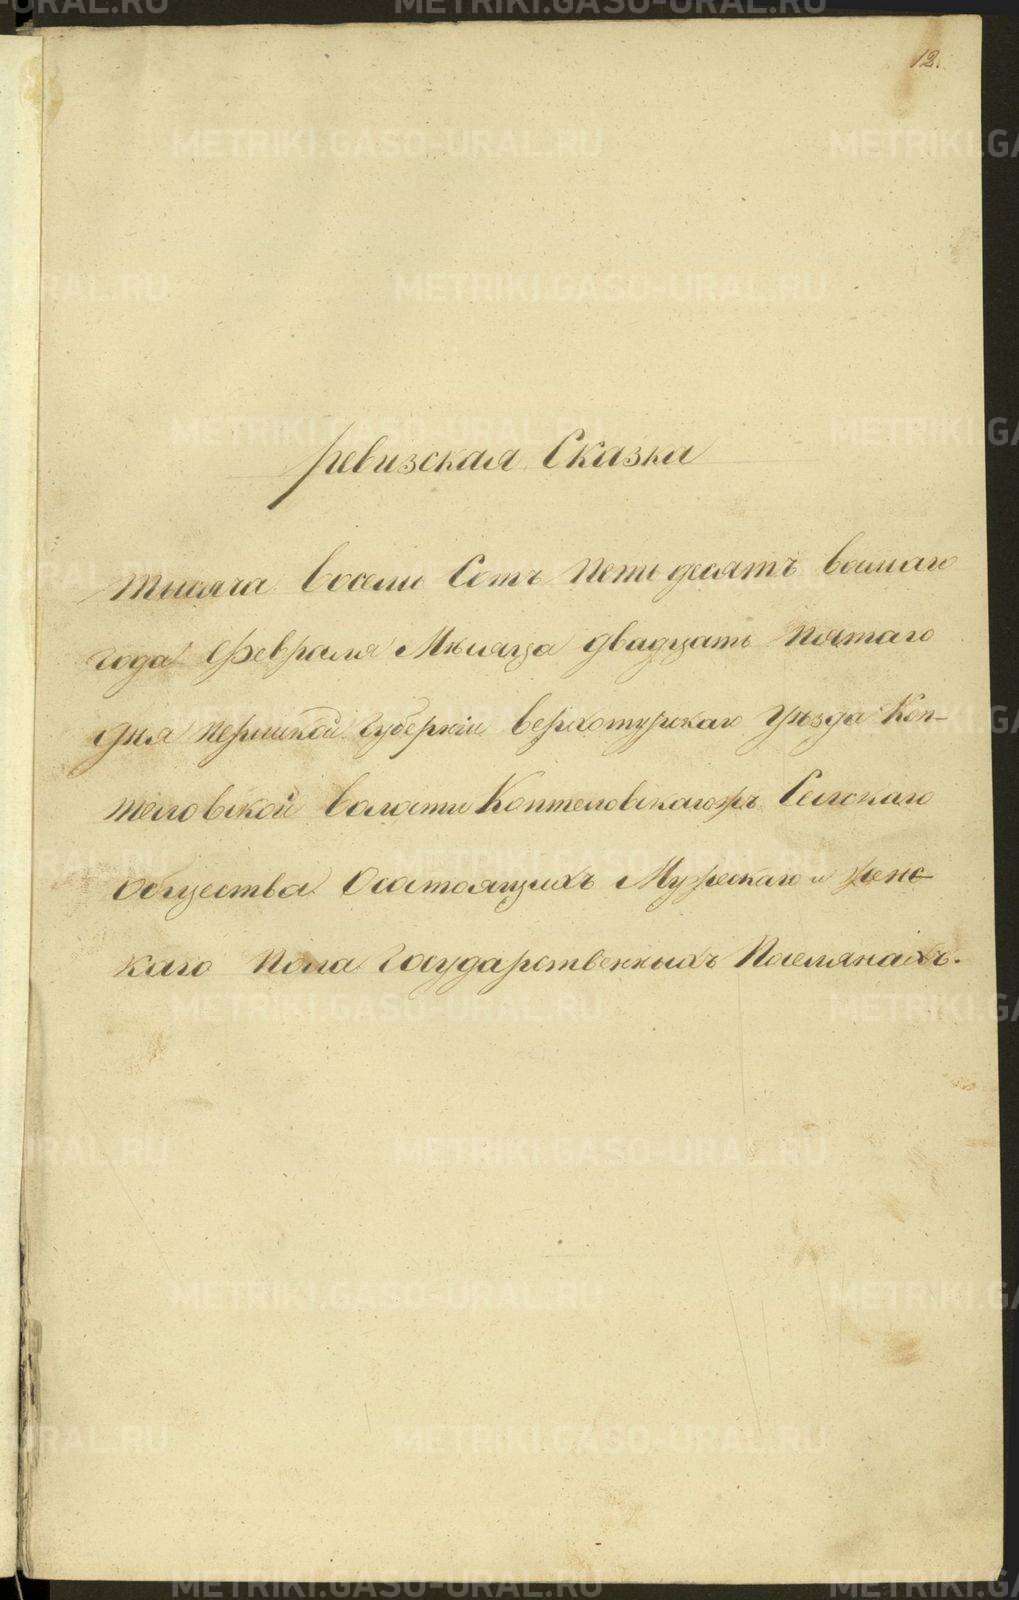 12.
Ревизская Сказка
тысяча восемь Сотъ петьдесятъ восмаго
года Февраля Мѣсяца двадцать пятаго
дня пермской Губерніи верхотурскаго Уѣзда Коп-
теловской волости Коптеловскаго Селскаго
общества Осостоящихъ Мужескаго и женс
каго пола Государственныхъ Поселянахъ.